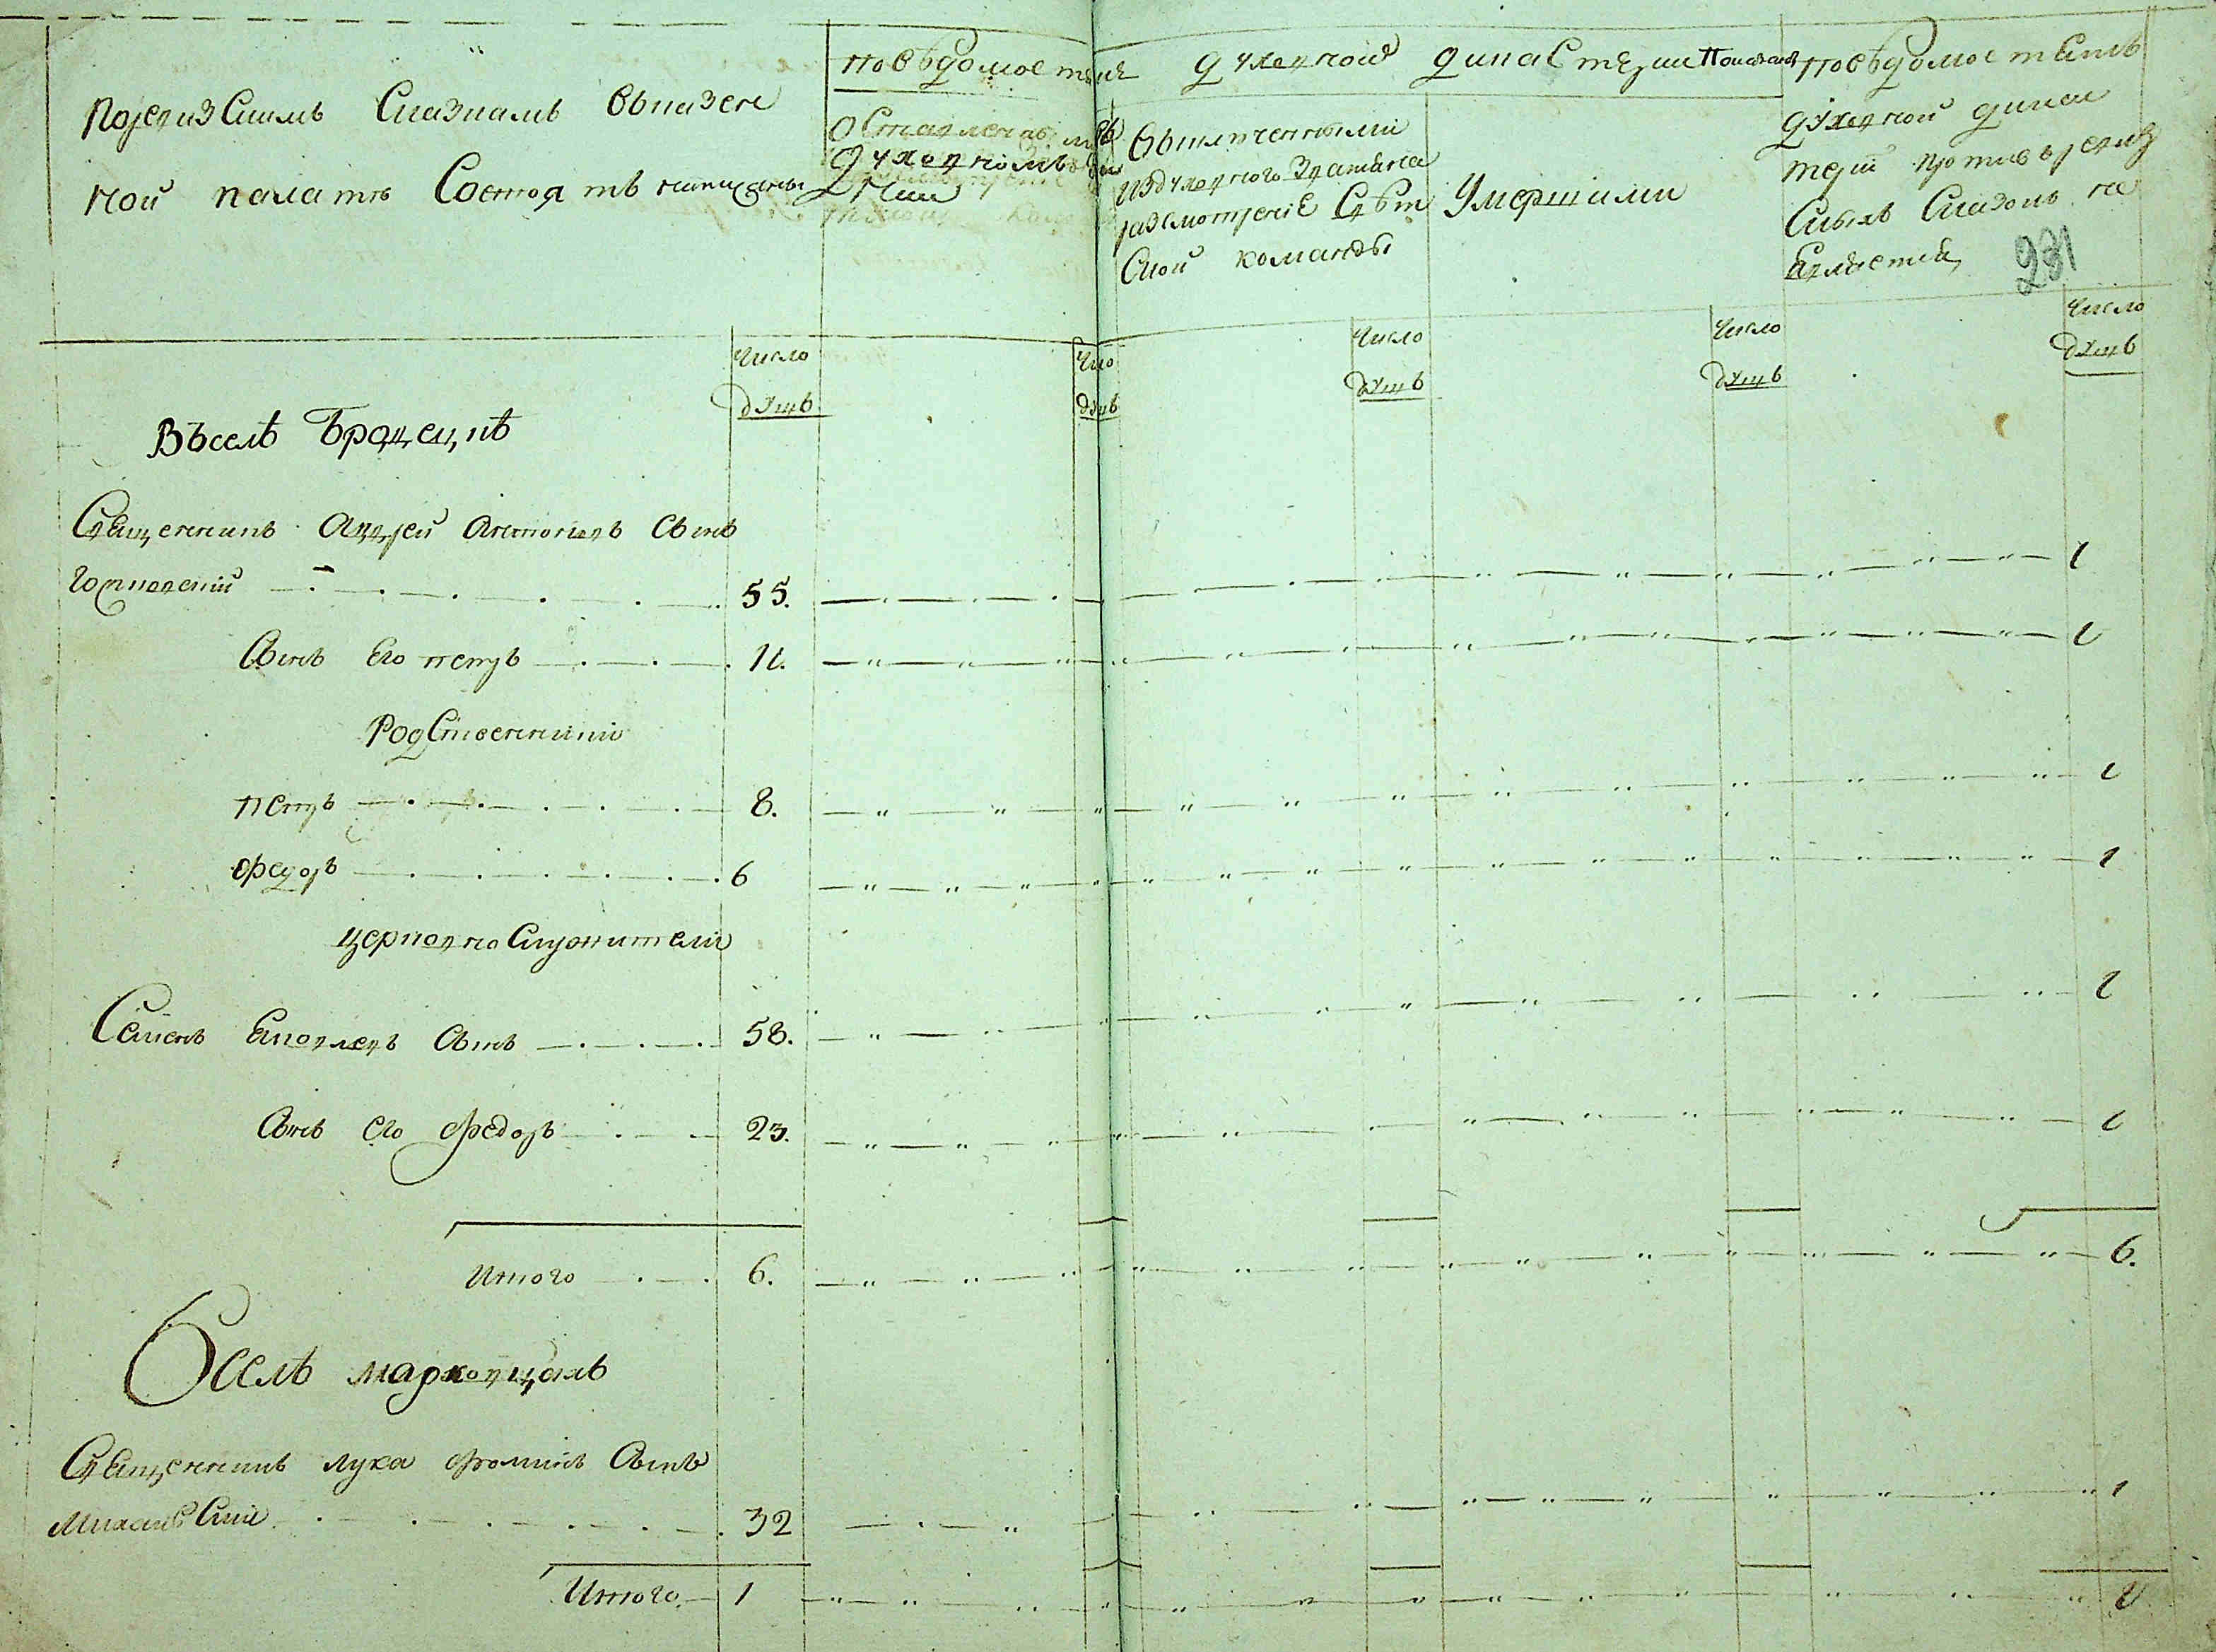 Поревизскимъ Сказкамъ Вказен
ной палатѣ Состоятъ написаны
повѣдомостямъ духовной дикастеріи Показаны
Оставленными
Духовномъ
чине
Выключенными
издуховного Званія на
разсмотреніе Свѣт
ской команды
Умершими
повѣдомостямъ
духовной дикас
теріи противъ ревиз
скихъ Сказокъ на
231
Число
душъ
Число
душъ
Число
душъ
Число
душъ
Число
душъ
Въселѣ Бродецкѣ
Священникъ Андрей Антоновъ Сынъ
55. 1
Сынъ Его петръ 11. 1
Родственники
петръ 8. 1
федоръ 6 1
церковно Служители
Семенъ Яковлевъ Сынъ 58. 1
Сынъ Его федоръ 23. 1
Итого 6. 6.
Вселѣ марковцахъ
Священникъ лука фоминъ Сынъ
32 1
Итого 1 1